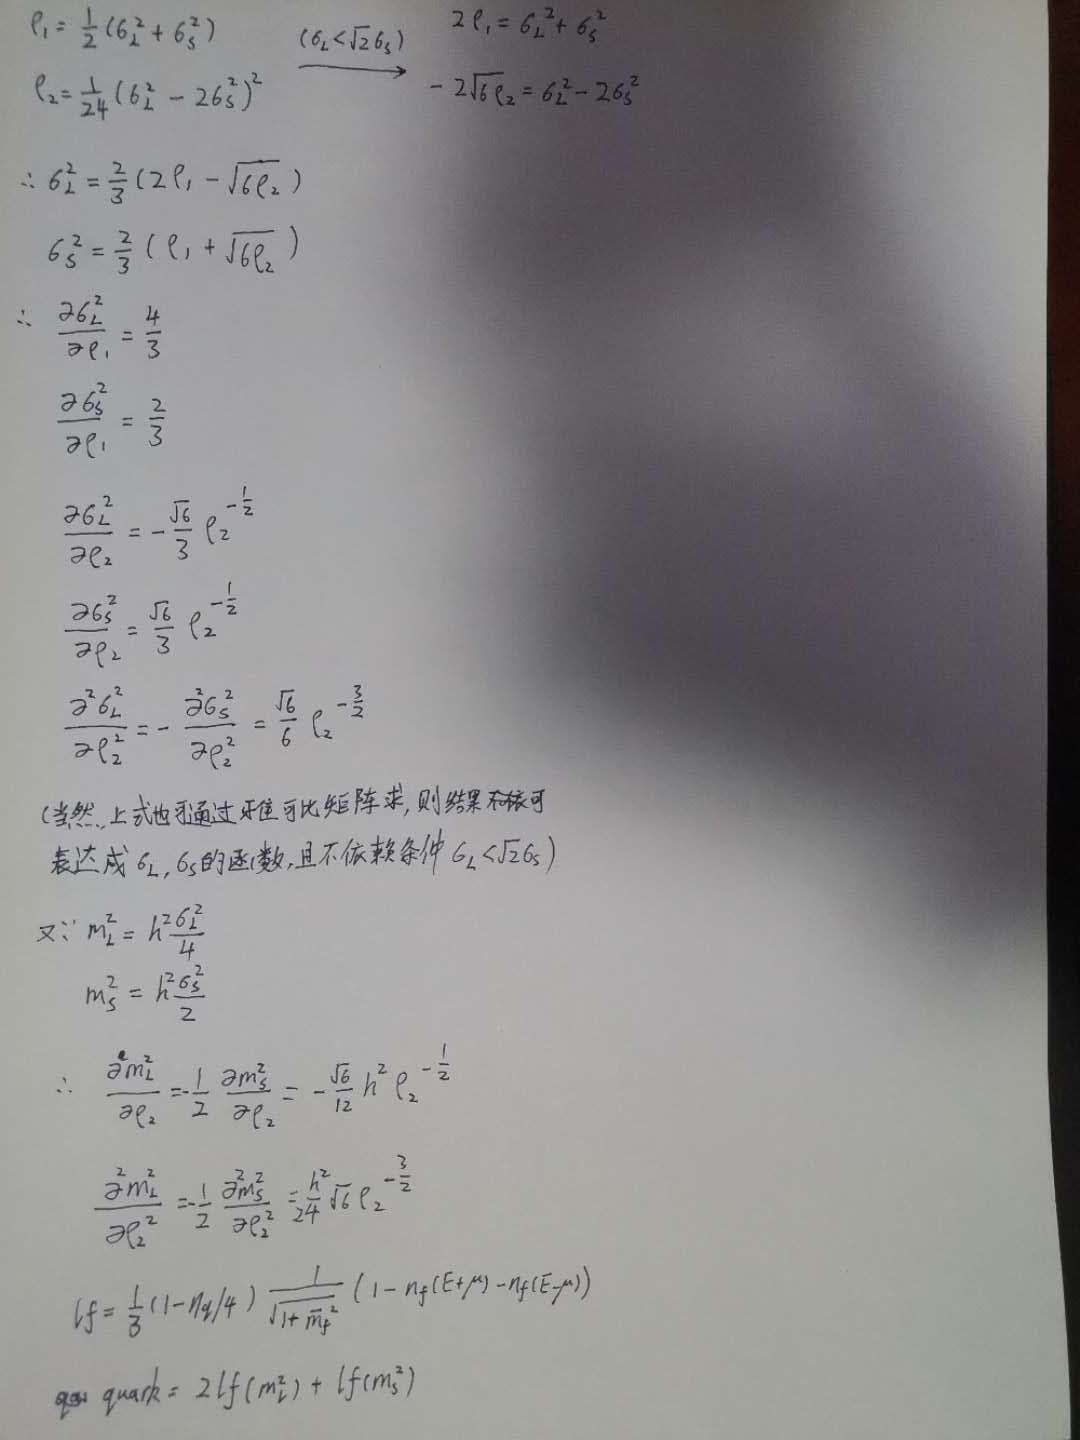 ρ₁ = 1/2 (σ_L² + σ_S²) (σ_L < √2 σ_S) → 2ρ₁ = σ_L² + σ_S²
ρ₂ = 1/24 (σ_L² − 2σ_S²)² − 2√6ρ₂ = σ_L² − 2σ_S²
∴ σ_L² = 2/3 (2ρ₁ − √6ρ₂)
σ_S² = 2/3 (ρ₁ + √6ρ₂)
∴ ∂σ_L²/∂ρ₁ = 4/3
∂σ_S²/∂ρ₁ = 2/3
∂σ_L²/∂ρ₂ = − √6/3 ρ₂^(−1/2)
∂σ_S²/∂ρ₂ = √6/3 ρ₂^(−1/2)
∂²σ_L²/∂ρ₂² = − ∂²σ_S²/∂ρ₂² = √6/6 ρ₂^(−3/2)
(当然,上式也可通过雅可比矩阵求,则结果可
表达成 σ_L, σ_S的函数,且不依赖条件 σ_L < √2 σ_S)
又∵ m_L² = h² σ_L²/4
m_S² = h² σ_S²/2
∴ ∂m_L²/∂ρ₂ = −1/2 ∂m_S²/∂ρ₂ = − √6/12 h² ρ₂^(−1/2)
∂²m_L²/∂ρ₂² = −1/2 ∂²m_S²/∂ρ₂² = h²/24 √6 ρ₂^(−3/2)
lf = 1/3 (1 − η_q/4) 1/√(1 + m̄_f²) (1 − n_f(E+μ) − n_f(E−μ))
quark = 2lf(m_L²) + lf(m_S²)